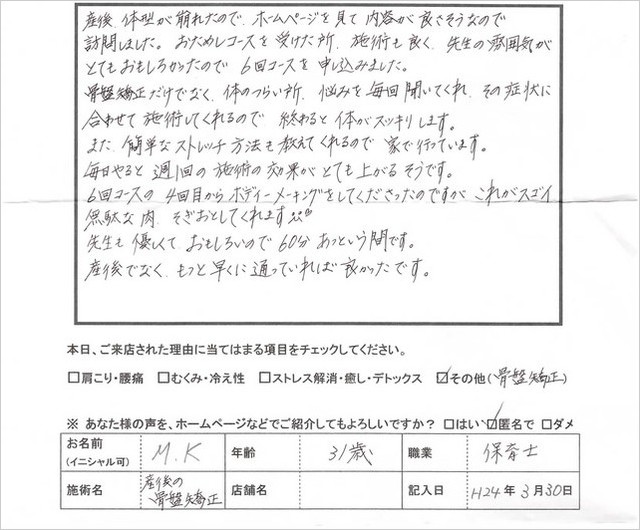 産後、体型が崩れたので、ホームページを見て内容が良さそうなので
訪問しました。おためしコースを受けた所、施術も良く、先生の雰囲気が
とてもおもしろかったので6回コースを申し込みました。
骨盤矯正だけでなく、体のつらい所、悩みを毎回聞いてくれ、その症状に
合わせて施術してくれるので終わると体がスッキリします。
また、簡単なストレッチ方法も教えてくれるので家で行っています。
毎日やると週1回の施術の効果がとても上がるそうです。
6回コースの4回目からボディーメーキングをしてくださったのですがこれがスゴイ
無駄な肉、そぎおとしてくれます
先生も優しくておもしろいので60分あっという間です。
産後でなく、もっと早くに通っていれば良かったです。
本日、ご来店された理由に当てはまる項目をチェックしてください。
□肩こり・腰痛 □むくみ・冷え性 □ストレス解消・癒し・デトックス ☑その他(骨盤矯正)
※ あなた様の声を、ホームページなどでご紹介してもよろしいですか? □はい ☑匿名で □ダメ
お名前 (イニシャル可) M.K 年齢 31歳 職業 保育士
施術名 産後の骨盤矯正 店舗名 記入日 H24年3月30日